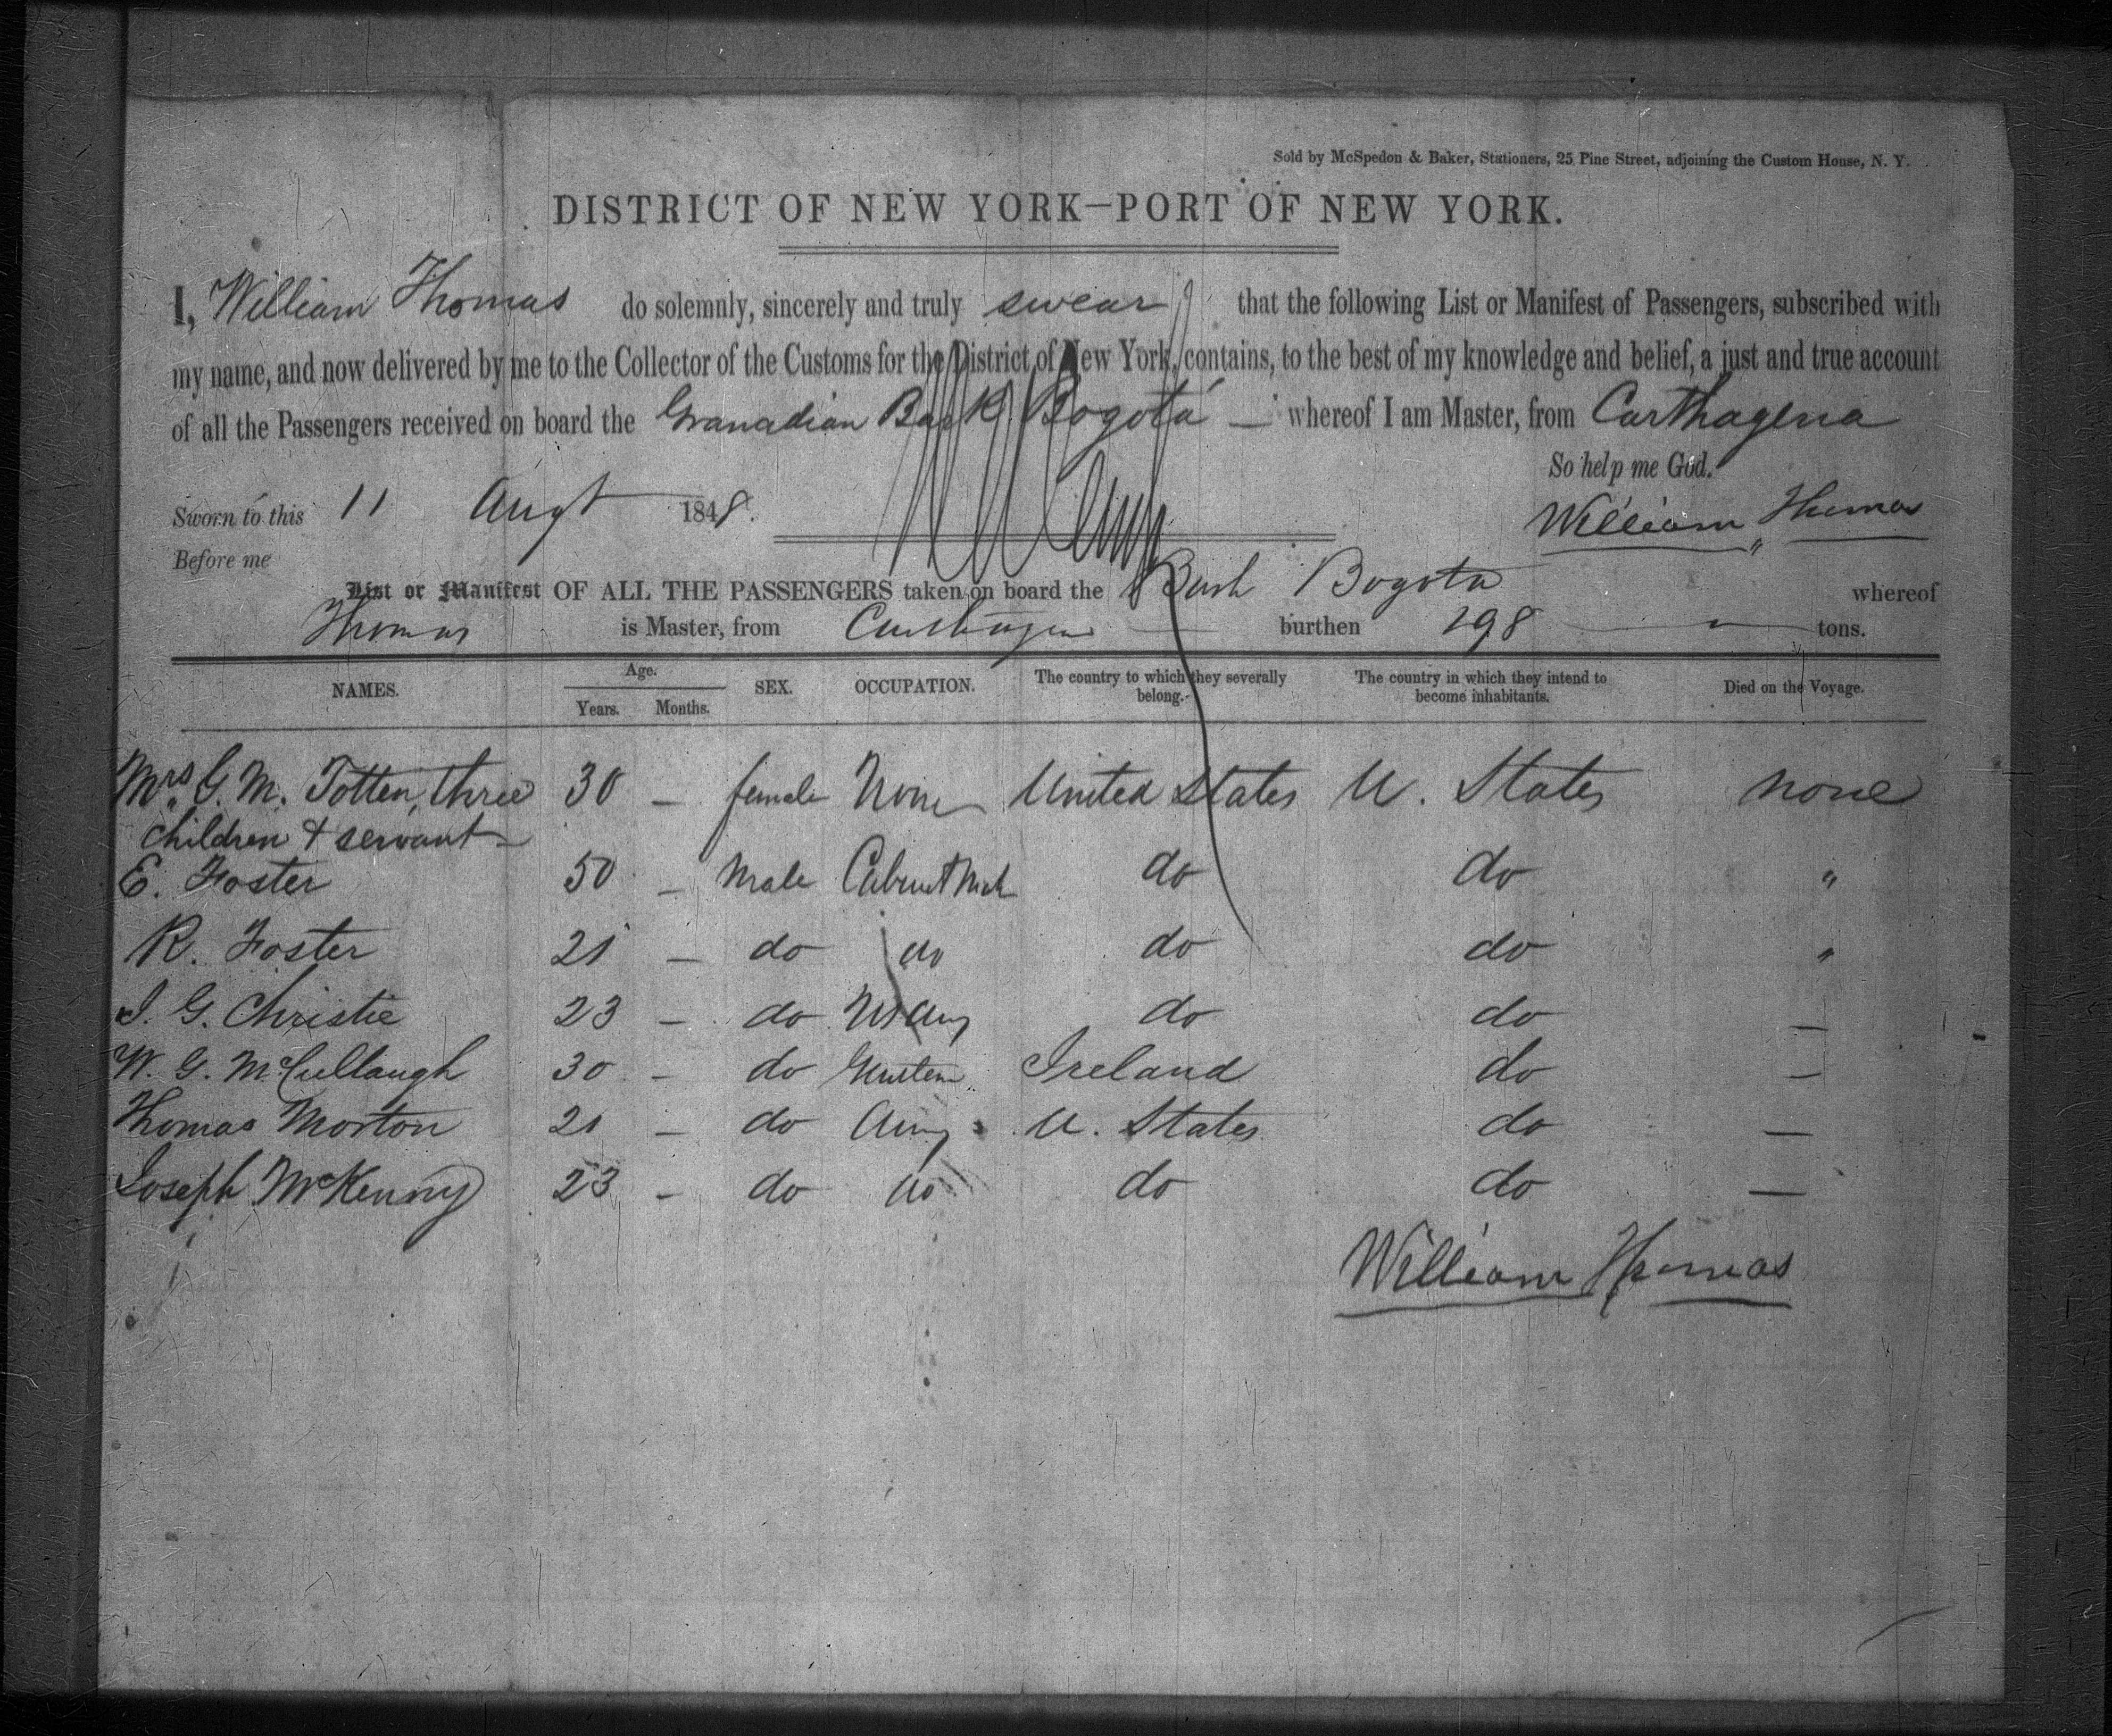 Sold by McSpedon & Baker, Stationers, 25 Pine Street, adjoining the Custom House, N. Y.
DISTRICT OF NEW YORK—PORT OF NEW YORK.
I, William Thomas do solemnly, sincerely and truly swear that the following List or Manifest of Passengers, subscribed with
my name, and now delivered by me to the Collector of the Customs for the District of New York, contains, to the best of my knowledge and belief, a just and true account
of all the Passengers received on board the Granadian Bark Bogotá — whereof I am Master, from Carthagena
So help me God.
Sworn to this 11 Augt 1848.
William Thomas
Before me
List or Manifest OF ALL THE PASSENGERS taken on board the Bark Bogota whereof
Thomas is Master, from Carthagena burthen 298 tons.
NAMES. Age. Years. Months. SEX. OCCUPATION. The country to which they severally belong. The country in which they intend to become inhabitants. Died on the Voyage.
Mrs G. M. Totten, three 30 — female None United States U. States none
children & servant —
E. Foster 50 — Male do do "
R. Foster 21 — do do do do "
J. G. Christie 23 — do do do —
W. G. McCullaugh 30 — do Ireland do —
Thomas Morton 21 — do U. States do —
Joseph McKenny 23 — do do do do —
William Thomas